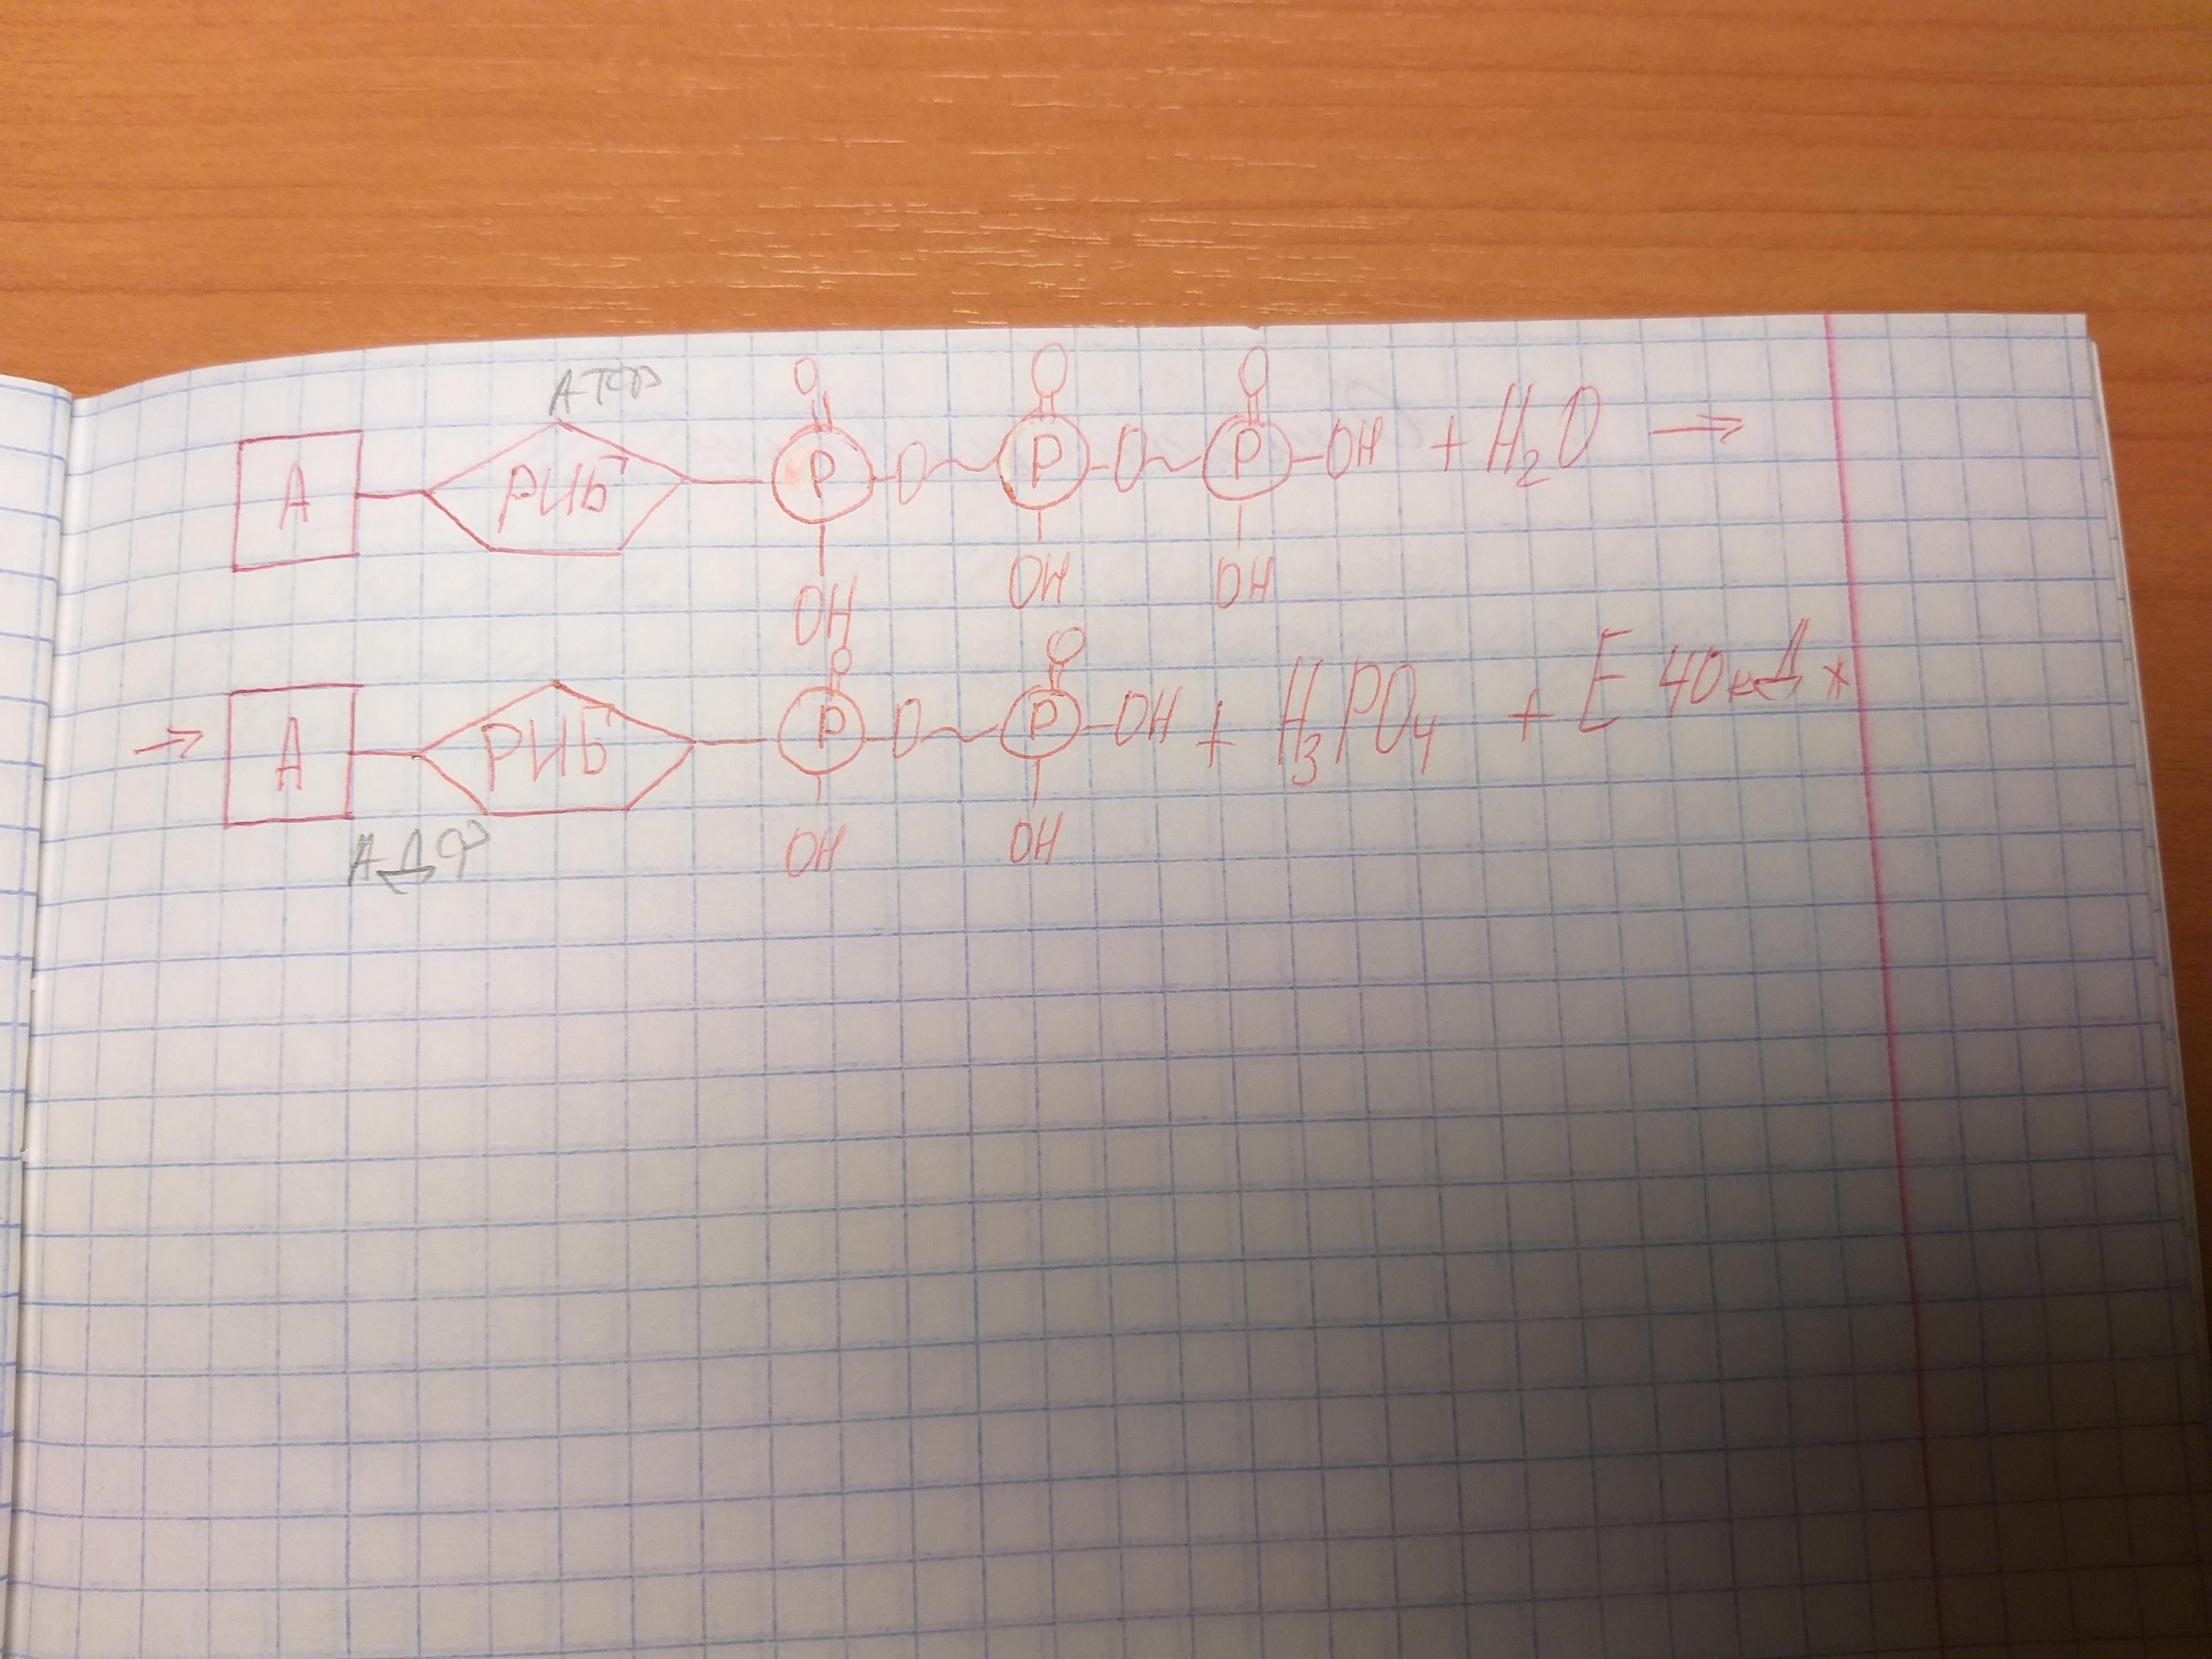 АТФ
O O O
А РИБ P O ~ P O ~ P OH + H₂O →
OH OH OH
O O
→ А РИБ P O ~ P OH + H₃PO₄ + E 40 кДж
АДФ OH OH